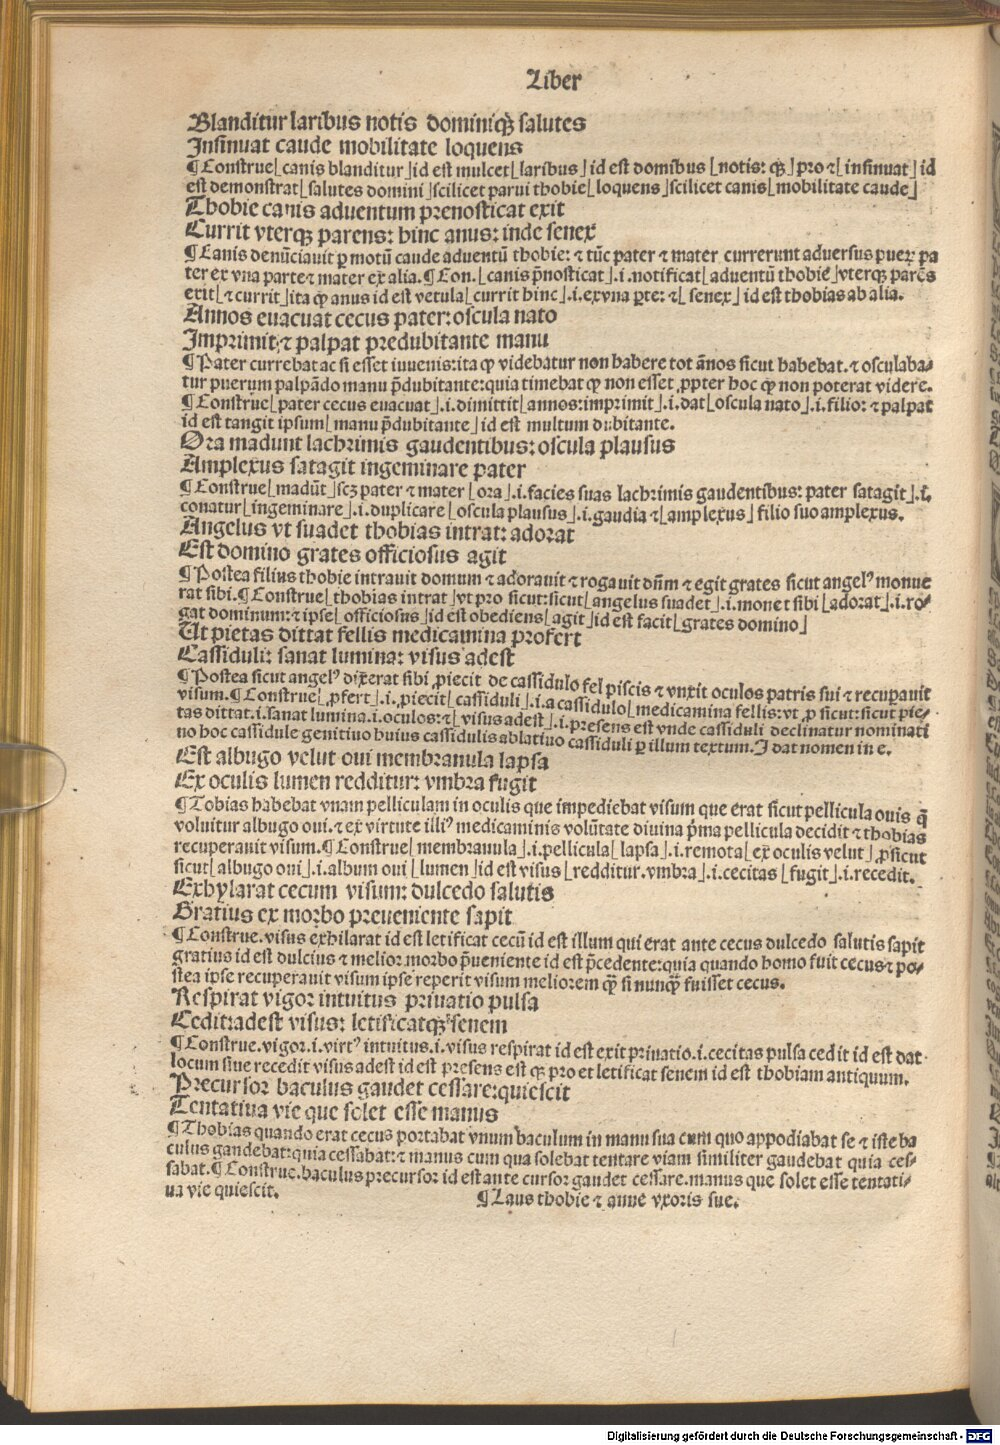 Liber
Blanditur laribus notis dominiqꝫ salutes
Insinuat caude mobilitate loquens
¶ Construe⌊canis blanditur⌋id est mulcet⌊laribus⌋id est domibus⌊notis: qꝫ⌋pro ⁊⌊insinuat⌋id
est demonstrat⌊salutes domini⌋scilicet parui thobie⌊loquens⌋scilicet canis⌊mobilitate caude⌋
Thobie canis aduentum prenosticat exit
Currit vterqꝫ parens: hinc anus: inde senex
¶ Canis denūciauit ꝑ motū caude aduentū thobie: ⁊ tūc pater ⁊ mater currerunt aduersus puerꝝ pa
ter ex vna parte⁊ mater ex alia.¶ Con.⌊canis p̄nosticat⌋.i.notificat⌊aduentū thobie⌋vterqꝫ parēs
exit⌊⁊ currit⌋ita ꝙ anus id est vetula⌊currit hinc⌋.i.exvna ꝑte: ⁊⌊senex⌋id est thobias ab alia.
Annos euacuat cecus pater: oscula nato
Imprimit: ⁊ palpat predubitante manu
¶ Pater currebat ac si esset iuuenis: ita ꝙ videbatur non habere tot ānos sicut habebat. ⁊ osculaba-
tur puerum palpādo manu p̄dubitante: quia timebat ꝙ non esset ꝓpter hoc ꝙ non poterat videre.
¶ Construe⌊pater cecus euacuat⌋.i.dimittit⌊annos: imprimit⌋.i.dat⌊oscula nato⌋.i.filio: ⁊ palpat
id est tangit ipsum⌊manu p̄dubitante⌋id est multum dubitante.
Ora madunt lachrimis gaudentibus: oscula plausus
Amplexus satagit ingeminare pater
¶ Construe⌊madūt⌋scꝫ pater ⁊ mater⌊ora⌋.i.facies suas lachrimis gaudentibus: pater satagit⌋.i.
conatur⌊ingeminare⌋.i.duplicare⌊oscula plausus⌋.i.gaudia ⁊⌊amplexus⌋filio suo amplexus.
Angelus vt suadet thobias intrat: adorat
Est domino grates officiosus agit
¶ Postea filius thobie intrauit domum ⁊ adorauit ⁊ rogauit dūm ⁊ egit grates sicut angelꝰ monue
rat sibi.¶ Construe⌊thobias intrat⌋vt pro sicut: sicut⌊angelus suadet⌋.i.monet sibi⌊adorat⌋.i.ro-
gat dominum: ⁊ ipse⌊officiosus⌋id est obediens⌊agit⌋id est facit⌊grates domino⌋
Ut pietas dittat fellis medicamina profert
Cassiduli: sanat lumina: visus adest
¶ Postea sicut angelꝰ dixerat sibi ꝓiecit de cassidulo fel piscis ⁊ vnxit oculos patris sui ⁊ recuꝑauit
visum.¶ Construe⌊ꝓfert⌋.i.ꝓiecit⌊cassiduli⌋.i.a cassidulo⌊medicamina fellis: vt ꝓ sicut: sicut pie-
tas dittat.i.sanat lumina.i.oculos: ⁊⌊visus adest⌋.i.presens est vnde cassiduli declinatur nominati
no hoc cassidule genitiuo huius cassidulis ablatiuo cassiduli ꝑ illum textum.I dat nomen in e.
Est albugo velut oui membranula lapsa
Ex oculis lumen redditur: vmbra fugit
¶ Tobias habebat vnam pelliculam in oculis que impediebat visum que erat sicut pellicula ouis q̄
voluitur albugo oui. ⁊ ex virtute illiꝰ medicaminis volūtate diuina p̄ma pellicula decidit ⁊ thobias
recuperauit visum.¶ Construe⌊membranula⌋.i.pellicula⌊lapsa⌋.i.remota⌊ex oculis velut⌋ꝓsicut
sicut⌊albugo oui⌋.i.album oui⌊lumen⌋id est visus⌊redditur.vmbra⌋.i.cecitas⌊fugit⌋.i.recedit.
Exhylarat cecum visum: dulcedo salutis
Gratius ex morbo preueniente sapit
¶ Construe.visus exhilarat id est letificat cecū id est illum qui erat ante cecus dulcedo salutis sapit
gratius id est dulcius ⁊ melior.morbo p̄ueniente id est p̄cedente: quia quando homo fuit cecus⁊ po-
stea ipse recuperauit visum ipse reperit visum meliorem q̄ si nunq̄ fuisset cecus.
Respirat vigor intuitus priuatio pulsa
Cedit: adest visus: letificatqꝫ senem
¶ Construe.vigor.i.virtꝰ intuitus.i.visus respirat id est exit priuatio.i.cecitas pulsa cedit id est dat
locum siue recedit visus adest id est presens est qꝫ pro et letificat senem id est thobiam antiquum.
Precursor baculus gaudet cessare: quiescit
Tentatiua vie que solet esse manus
¶ Thobias quando erat cecus portabat vnum baculum in manu sua cum quo appodiabat se ⁊ iste ba
culus gaudebat: quia cessabat: ⁊ manus cum qua solebat tentare viam similiter gaudebat quia ces-
sabat.¶ Construe.baculus precursor id est ante cursor gaudet cessare.manus que solet esse tentati-
ua vie quiescit.
¶ Laus thobie ⁊ anne vxoris sue.
Digitalisierung gefördert durch die Deutsche Forschungsgemeinschaft - DFG